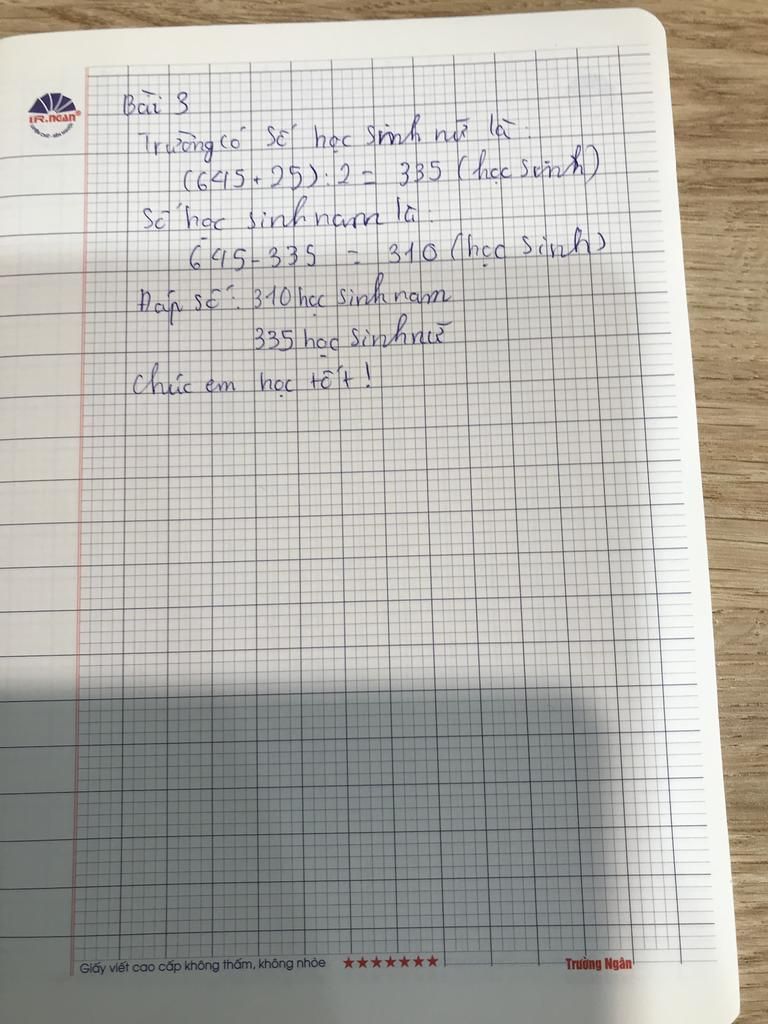 TR.NGAN®
Bài 3
Trường có số học sinh nữ là:
(645 + 25) : 2 = 335 (học sinh)
Số học sinh nam là:
645 - 335 = 310 (học sinh)
Đáp số: 310 học sinh nam
335 học sinh nữ
Chúc em học tốt!
Giấy viết cao cấp không thấm, không nhòe ★★★★★★★ Trường Ngân